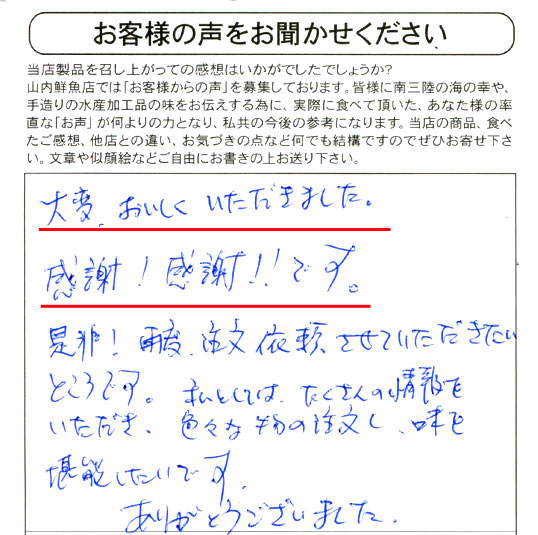 お客様の声をお聞かせください
当店製品を召し上がっての感想はいかがでしたでしょうか?
山内鮮魚店では「お客様からの声」を募集しております。皆様に南三陸の海の幸や、
手造りの水産加工品の味をお伝えする為に、実際に食べて頂いた、あなた様の率
直な「お声」が何よりの力となり、私共の今後の参考になります。当店の商品、食べ
たご感想、他店との違い、お気づきの点など何でも結構ですのでぜひお寄せ下さ
い。文章や似顔絵などご自由にお書きの上お送り下さい。
大変、おいしくいただきました。
感謝!感謝!!です。
是非!再度、注文依頼させていただきたい
ところです。私としては、たくさんの情報を
いただき、色々な物の注文し、味を
堪能したいです。
ありがとうございました。